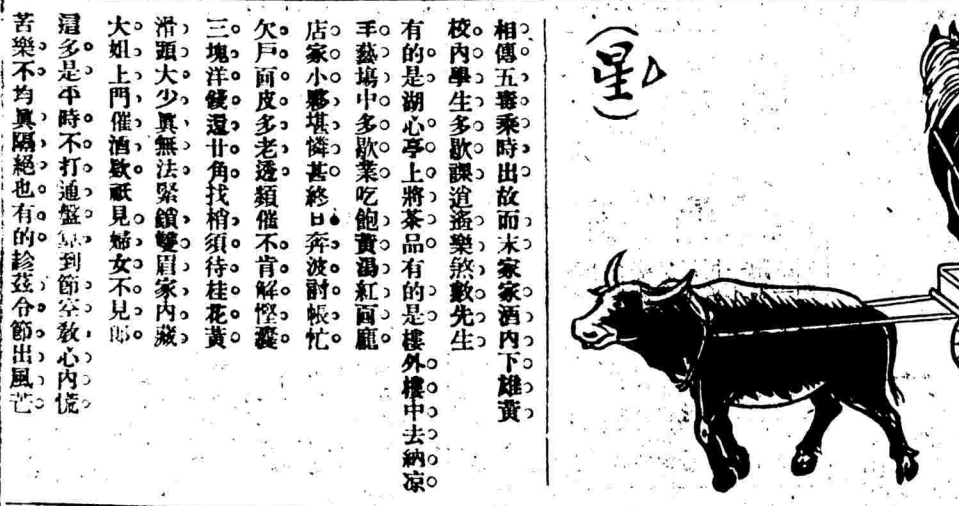 (星)
相傳五毒乘時出故而末家家酒內下雄黃
校內學生多歇課逍遙樂煞數先生
有的是湖心亭上將茶品有的是樓外樓中去納凉
手藝塲中多歇業吃飽黃湯紅面龐
店家小夥堪憐甚終日奔波討帳忙
欠戶面皮多老透頻催不肯解慳囊
三塊洋錢還廿角找梢須待桂花黃
滑頭大少眞無法緊鎖雙眉家內藏
大姐上門催酒欵祇見婦女不見郎
這多是平時不打通盤到節空教心內慌
苦樂不均眞隔絕也有的趁茲令節出風芒